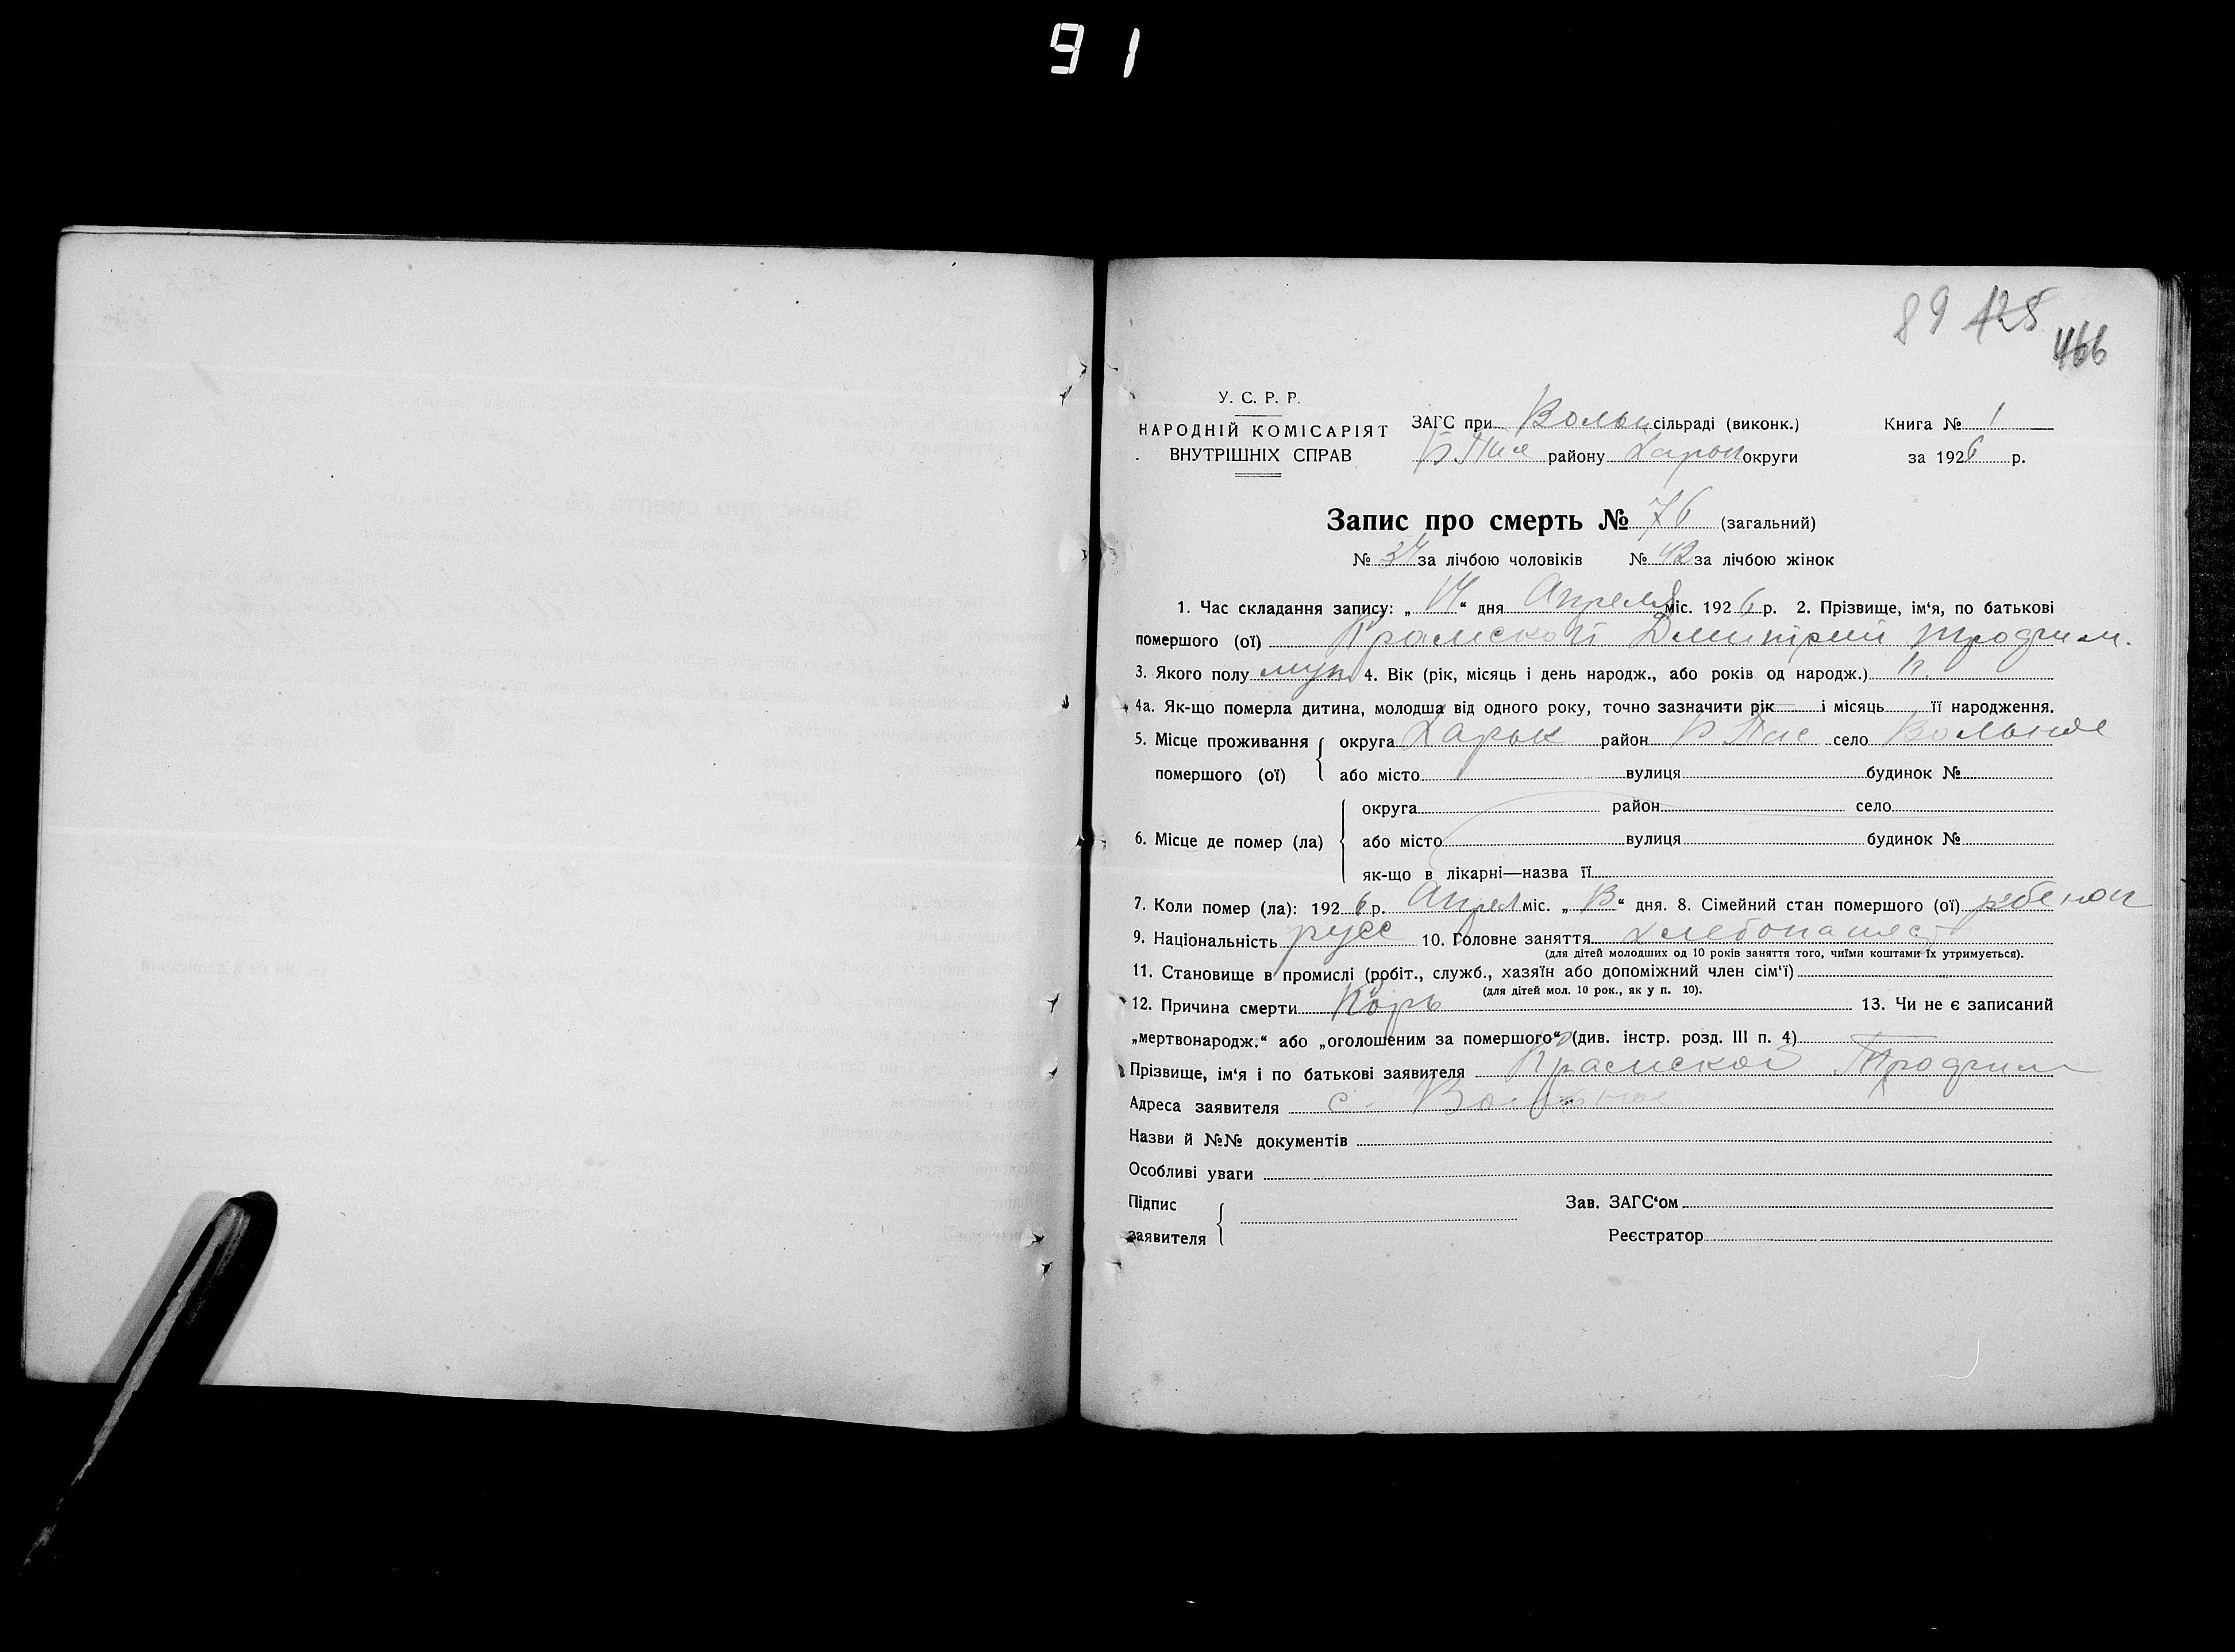 91
89 125
466
У. С. Р. Р.
НАРОДНІЙ КОМІСАРІЯТ
ВНУТРІШНІХ СПРАВ
ЗАГС при Вольн сільраді (виконк.)
району округи
Книга № 1
за 1926 р.
Запис про смерть № 76 (загальний)
№ 34 за лічбою чоловіків № 42 за лічбою жінок
1. Час складання запису: „14“ дня Апреля міс. 1926 р. 2. Прізвище, ім‘я, по батькові
помершого (ої) Крамской Дмитрий Трофим.
3. Якого полу муж 4. Вік (рік, місяць і день народж., або років од народж.)
4а. Як-що померла дитина, молодша від одного року, точно зазначити рік і місяць її народження.
5. Місце проживання помершого (ої) округа Харьк район село Вольное
або місто вулиця будинок №
6. Місце де помер (ла) округа район село
або місто вулиця будинок №
як-що в лікарні—назва її
7. Коли помер (ла): 1926 р. Апрел міс. „ “ дня. 8. Сімейний стан помершого (ої) ребенок
9. Національність русс 10. Головне заняття хлебопашест
(для дітей молодших од 10 років заняття того, чиїми коштами їх утримується).
11. Становище в промислі (робіт., служб., хазяїн або допоміжний член сім‘ї)
(для дітей мол. 10 рок., як у п. 10).
12. Причина смерти Корь 13. Чи не є записаний
„мертвонародж.“ або „оголошеним за помершого“ (див. інстр. розд. III п. 4)
Прізвище, ім‘я і по батькові заявителя Крамской Трофим
Адреса заявителя с. Вольное
Назви й №№ документів
Особливі уваги
Підпис заявителя
Зав. ЗАГС‘ом
Реєстратор